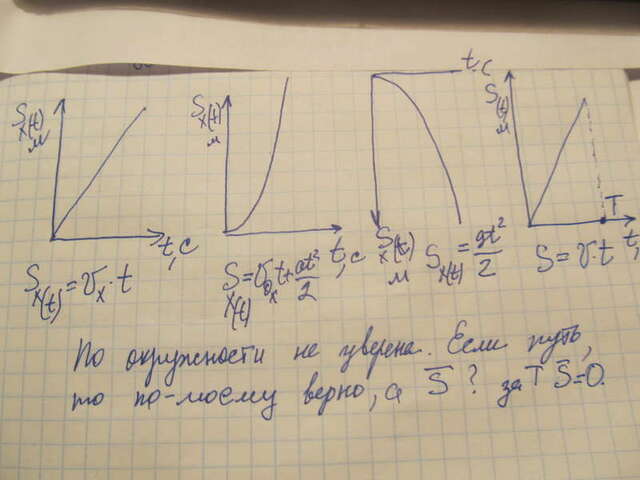 Sx(t) м
t, c
Sx(t) = vx · t
Sx(t) м
t, c
Sx(t) = v0x t + at²/2
t, c
Sx(t) м
Sx(t) = gt²/2
S(t) м
T
t,
S = v · t
По окружности не уверена. Если путь,
то по-моему верно, а S̅ ? за T S̅=0.